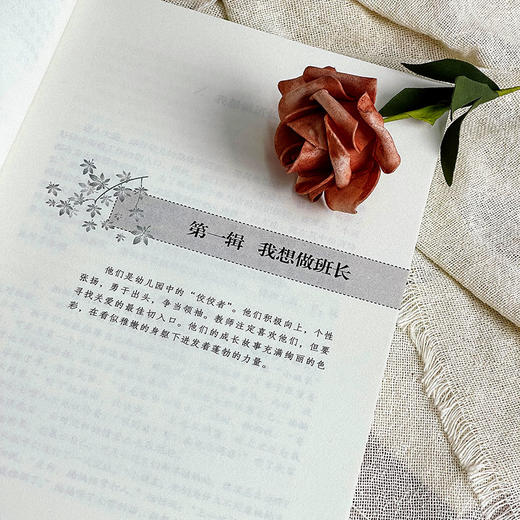 第一辑 我想做班长
他们是幼儿园中的“佼佼者”。他们积极向上，个性
张扬，勇于出头，争当领袖。教师注定喜欢他们，但要
寻找关爱的最佳切入口。他们的成长故事充满绚丽的色
彩，在看似稚嫩的身躯下迸发着蓬勃的力量。